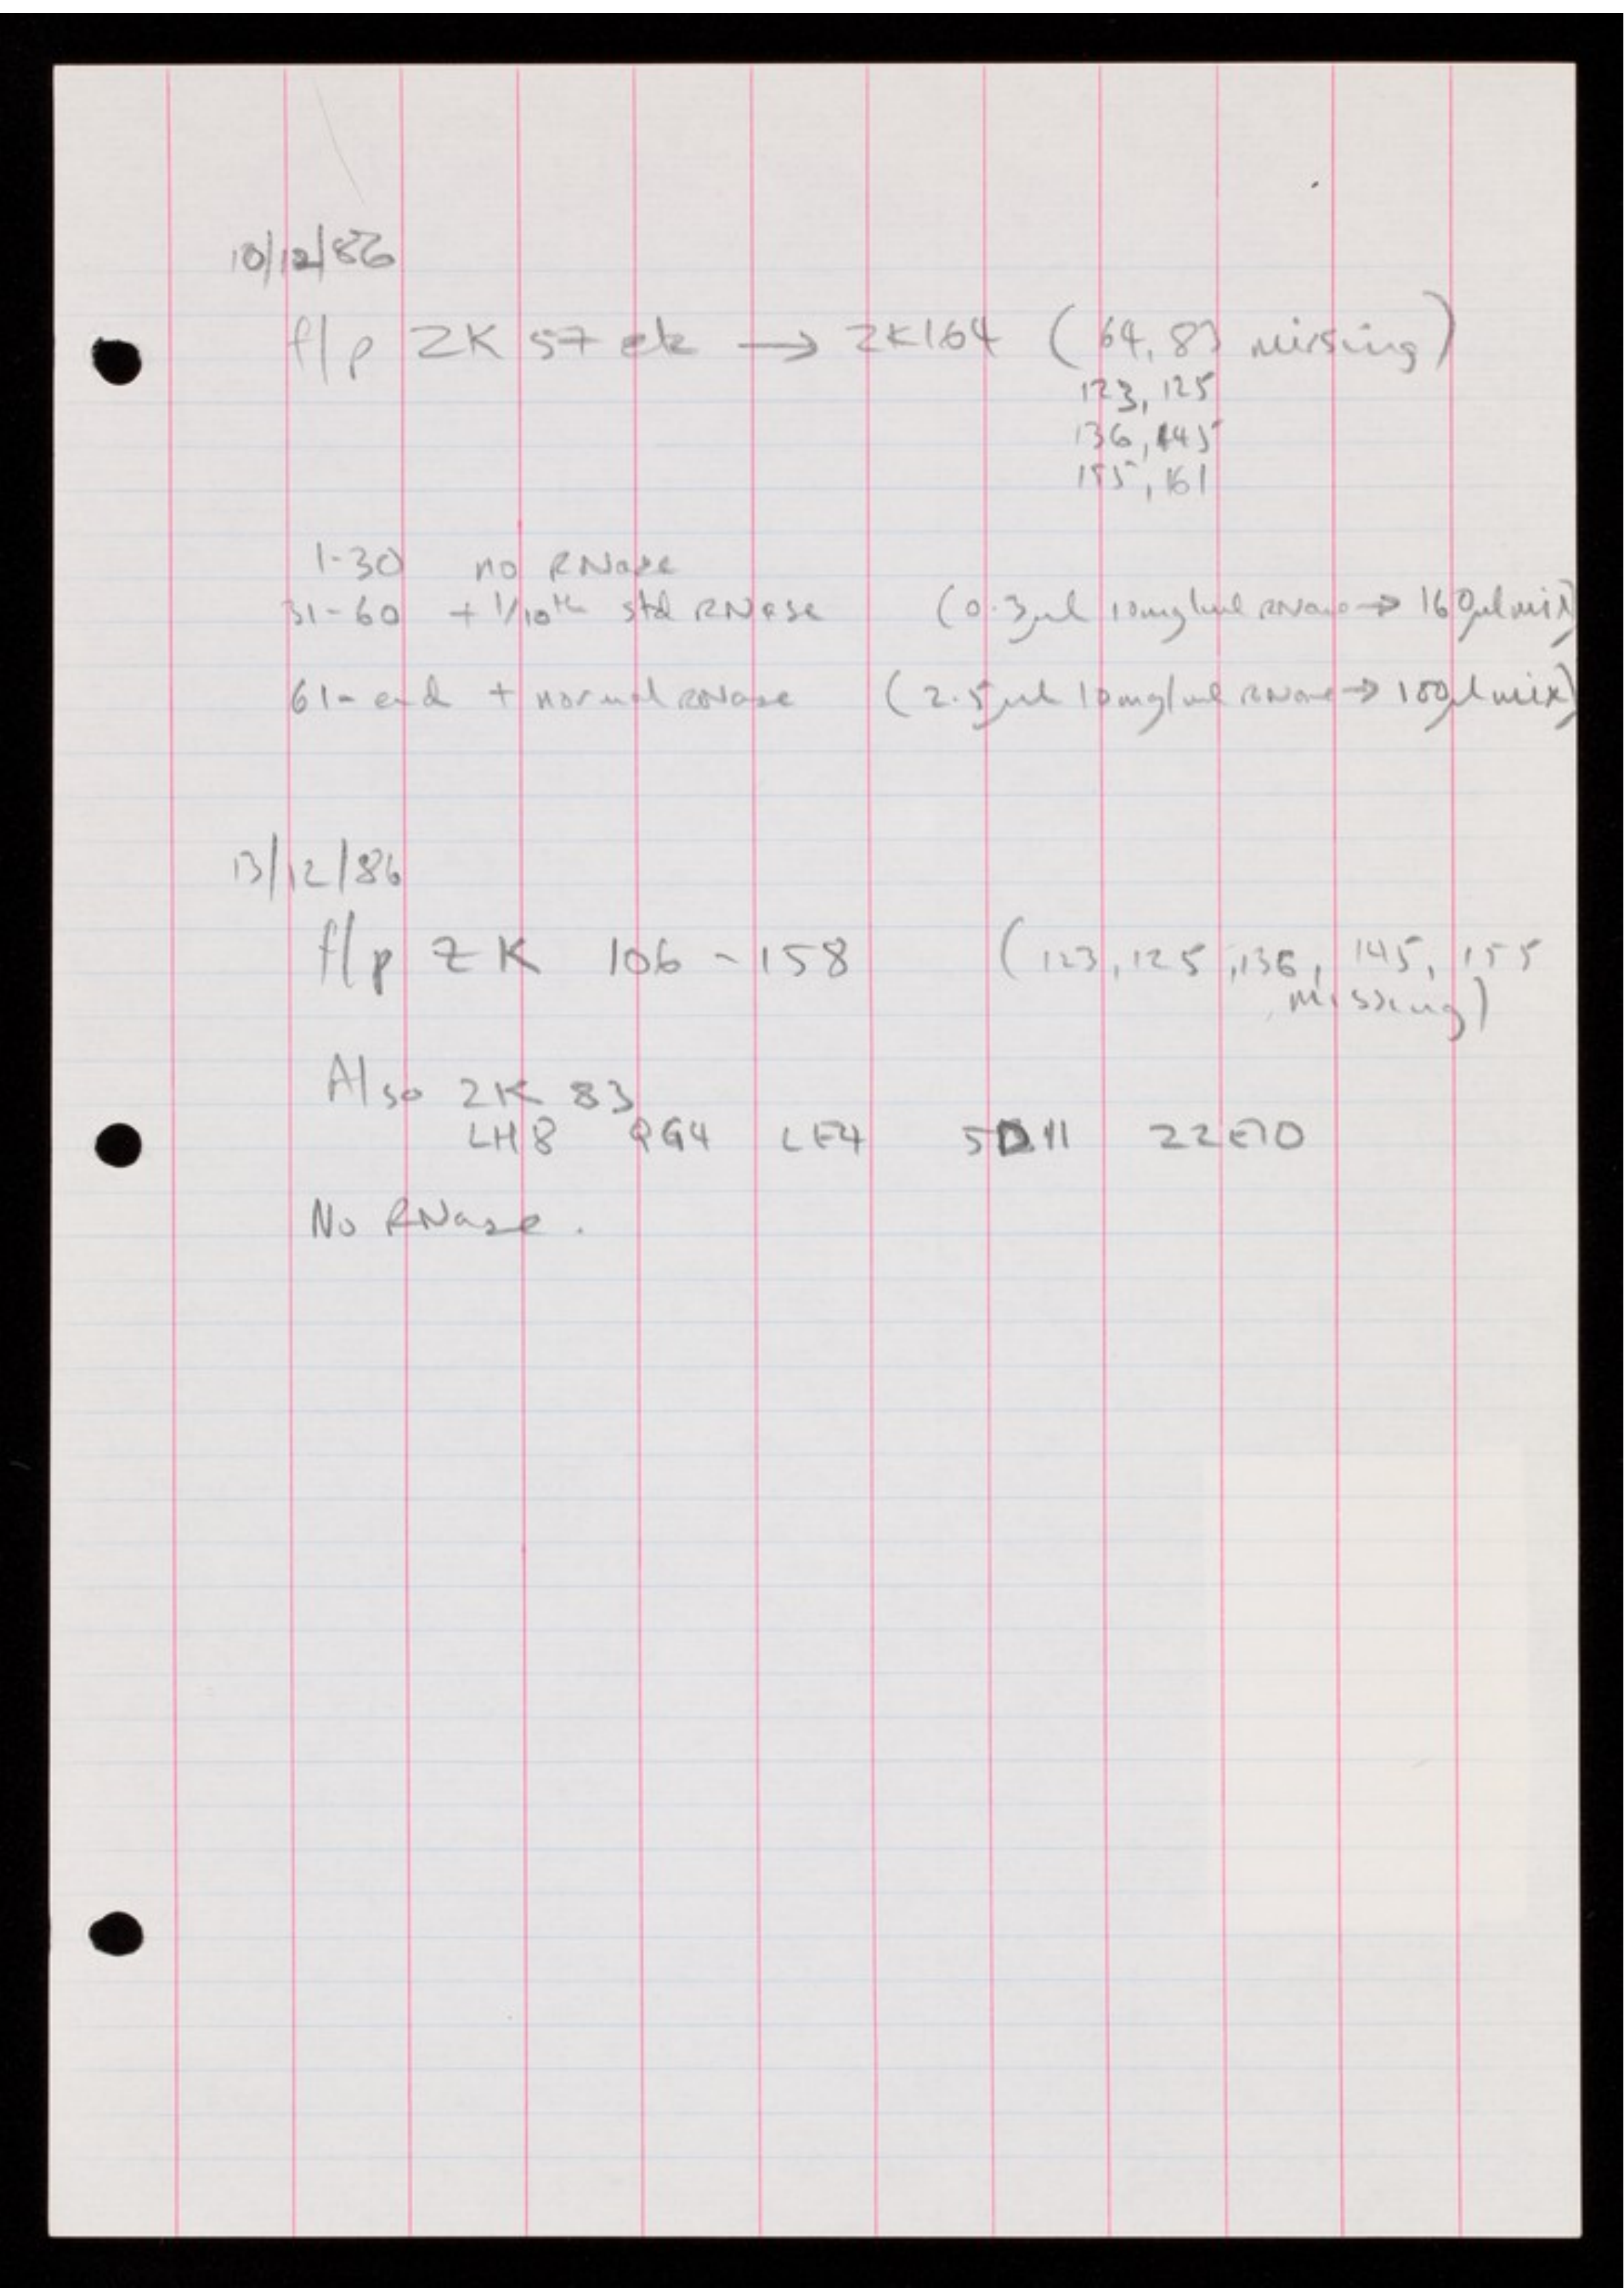 10/12/86
f/p ZK 57 etc → ZK164 (64, 83 missing)
123, 125
136, 145
155, 161
1-30 no RNase
31-60 + 1/10th std RNase (0.3µl 10mg/ml RNase → 160µl mix)
61-end + normal RNase (2.5µl 10mg/ml RNase → 100µl mix)
13/12/86
f/p ZK 106 - 158 (123, 125, 136, 145, 155
missing)
Also ZK 83
LH8 QG4 LE4 5D11 22E10
No RNase.